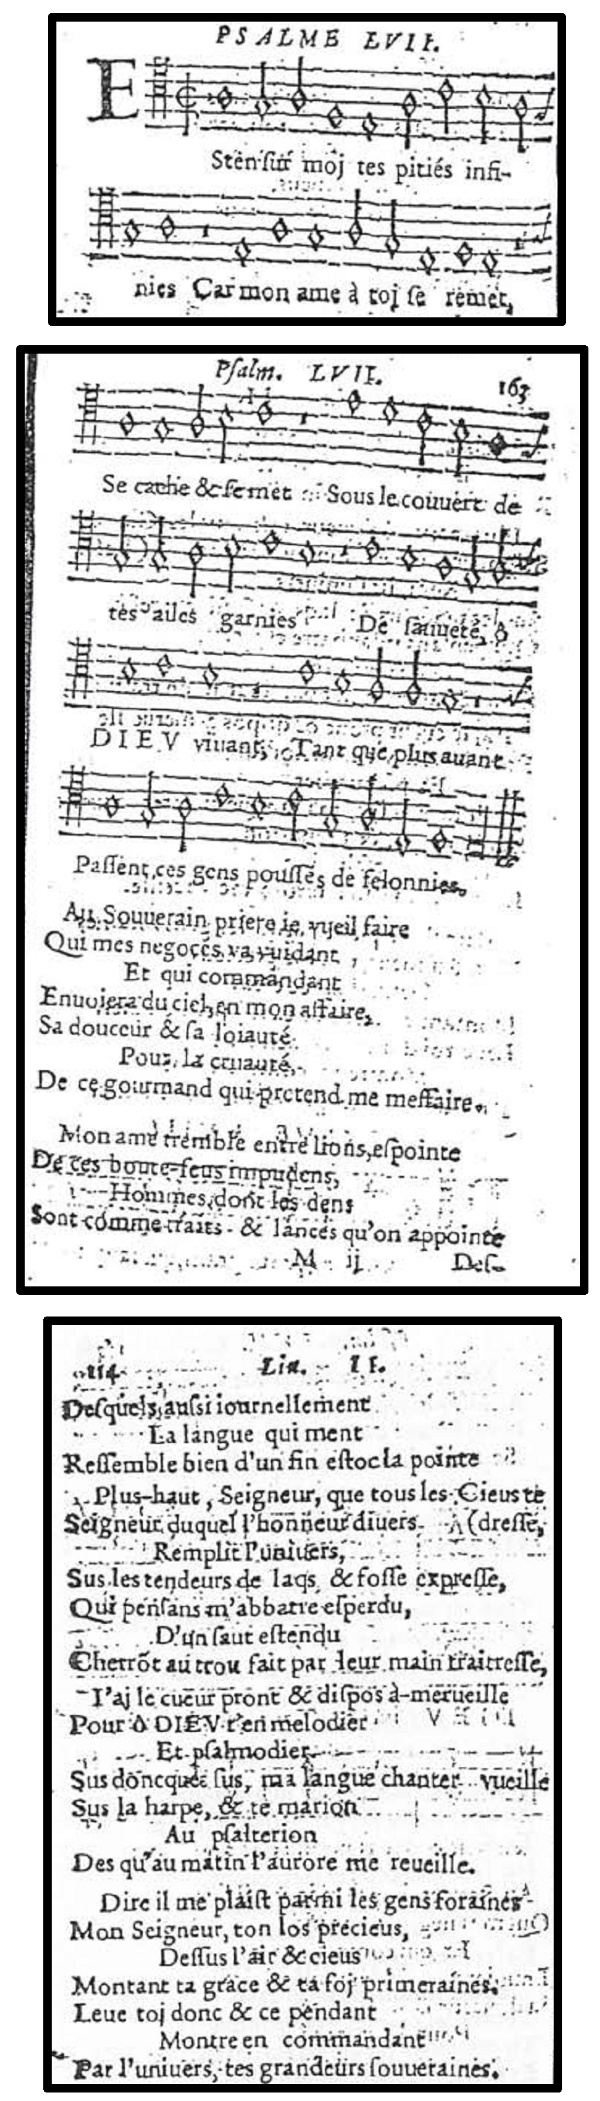 PSALME LVII.
EStẽn sur moj tes pitiés infi-
nies Car mon ame à toj se remet,
Psalm. LVII. 163
Se cache & se met Sous le couuert de
tes ailes garnies De sauueté, ô
DIEV viuant, Tant que plus auant
Passent ces gens poussés de felonnies.
Au Souuerain priere ie vueil faire
Qui mes negoces va vuidant
Et qui commandant
Enuoiera du ciel, en mon affaire,
Sa douceur & sa loiauté
Pour la cruauté,
De ce gourmand qui pretend me meffaire.
Mon ame tremble entre lions, espointe
De ces boute-feus impudens,
Hommes, dont les dens
Sont comme traits & lances qu'on appointe
M ij Des-
114 Liu. II.
Desquels aussi iournellement
La langue qui ment
Ressemble bien d'un fin estoc la pointe
Plus-haut, Seigneur, que tous les Cieus te
Seigneur duquel l'honneur diuers (dresse,
Remplit l'uniuers,
Sus les tendeurs de laqs, & fosse expresse,
Qui pensans m'abbatre esperdu,
D'un saut estendu
Cherrõt au trou fait par leur main traitresse,
I'aj le cueur pront & dispos à-merueille
Pour ô DIEV t'en melodier
Et psalmodier
Sus doncques sus, ma langue chanter vueille
Sus la harpe, & te marion
Au psalterion
Des qu'au matin l'aurore me reueille.
Dire il me plaist parmi les gens foraines
Mon Seigneur, ton los precieus,
Dessus l'air & cieus
Montant ta grace & ta foj primeraines.
Leue toj donc & ce pendant
Montre en commandant
Par l'uniuers, tes grandeurs souueraines.